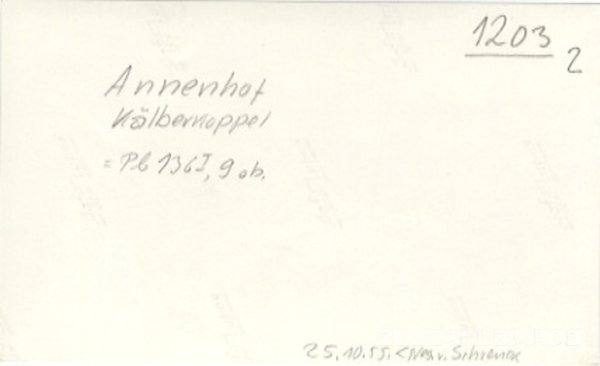 1203
2
Annenhof
Kälberkoppel
= Pb 136I, 9 ob.
25.10.55. < v. Schrenck